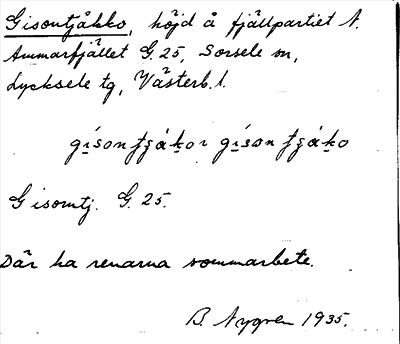 Gisontjåkko, höjd å fjällpartiet N.
Ammarfjället G. 25, Sorsele sn,
Lycksele tg, Västerb. l.
Gisomtj. G. 25.
Där ha renarna sommarbete.
B. Nygren 1935.